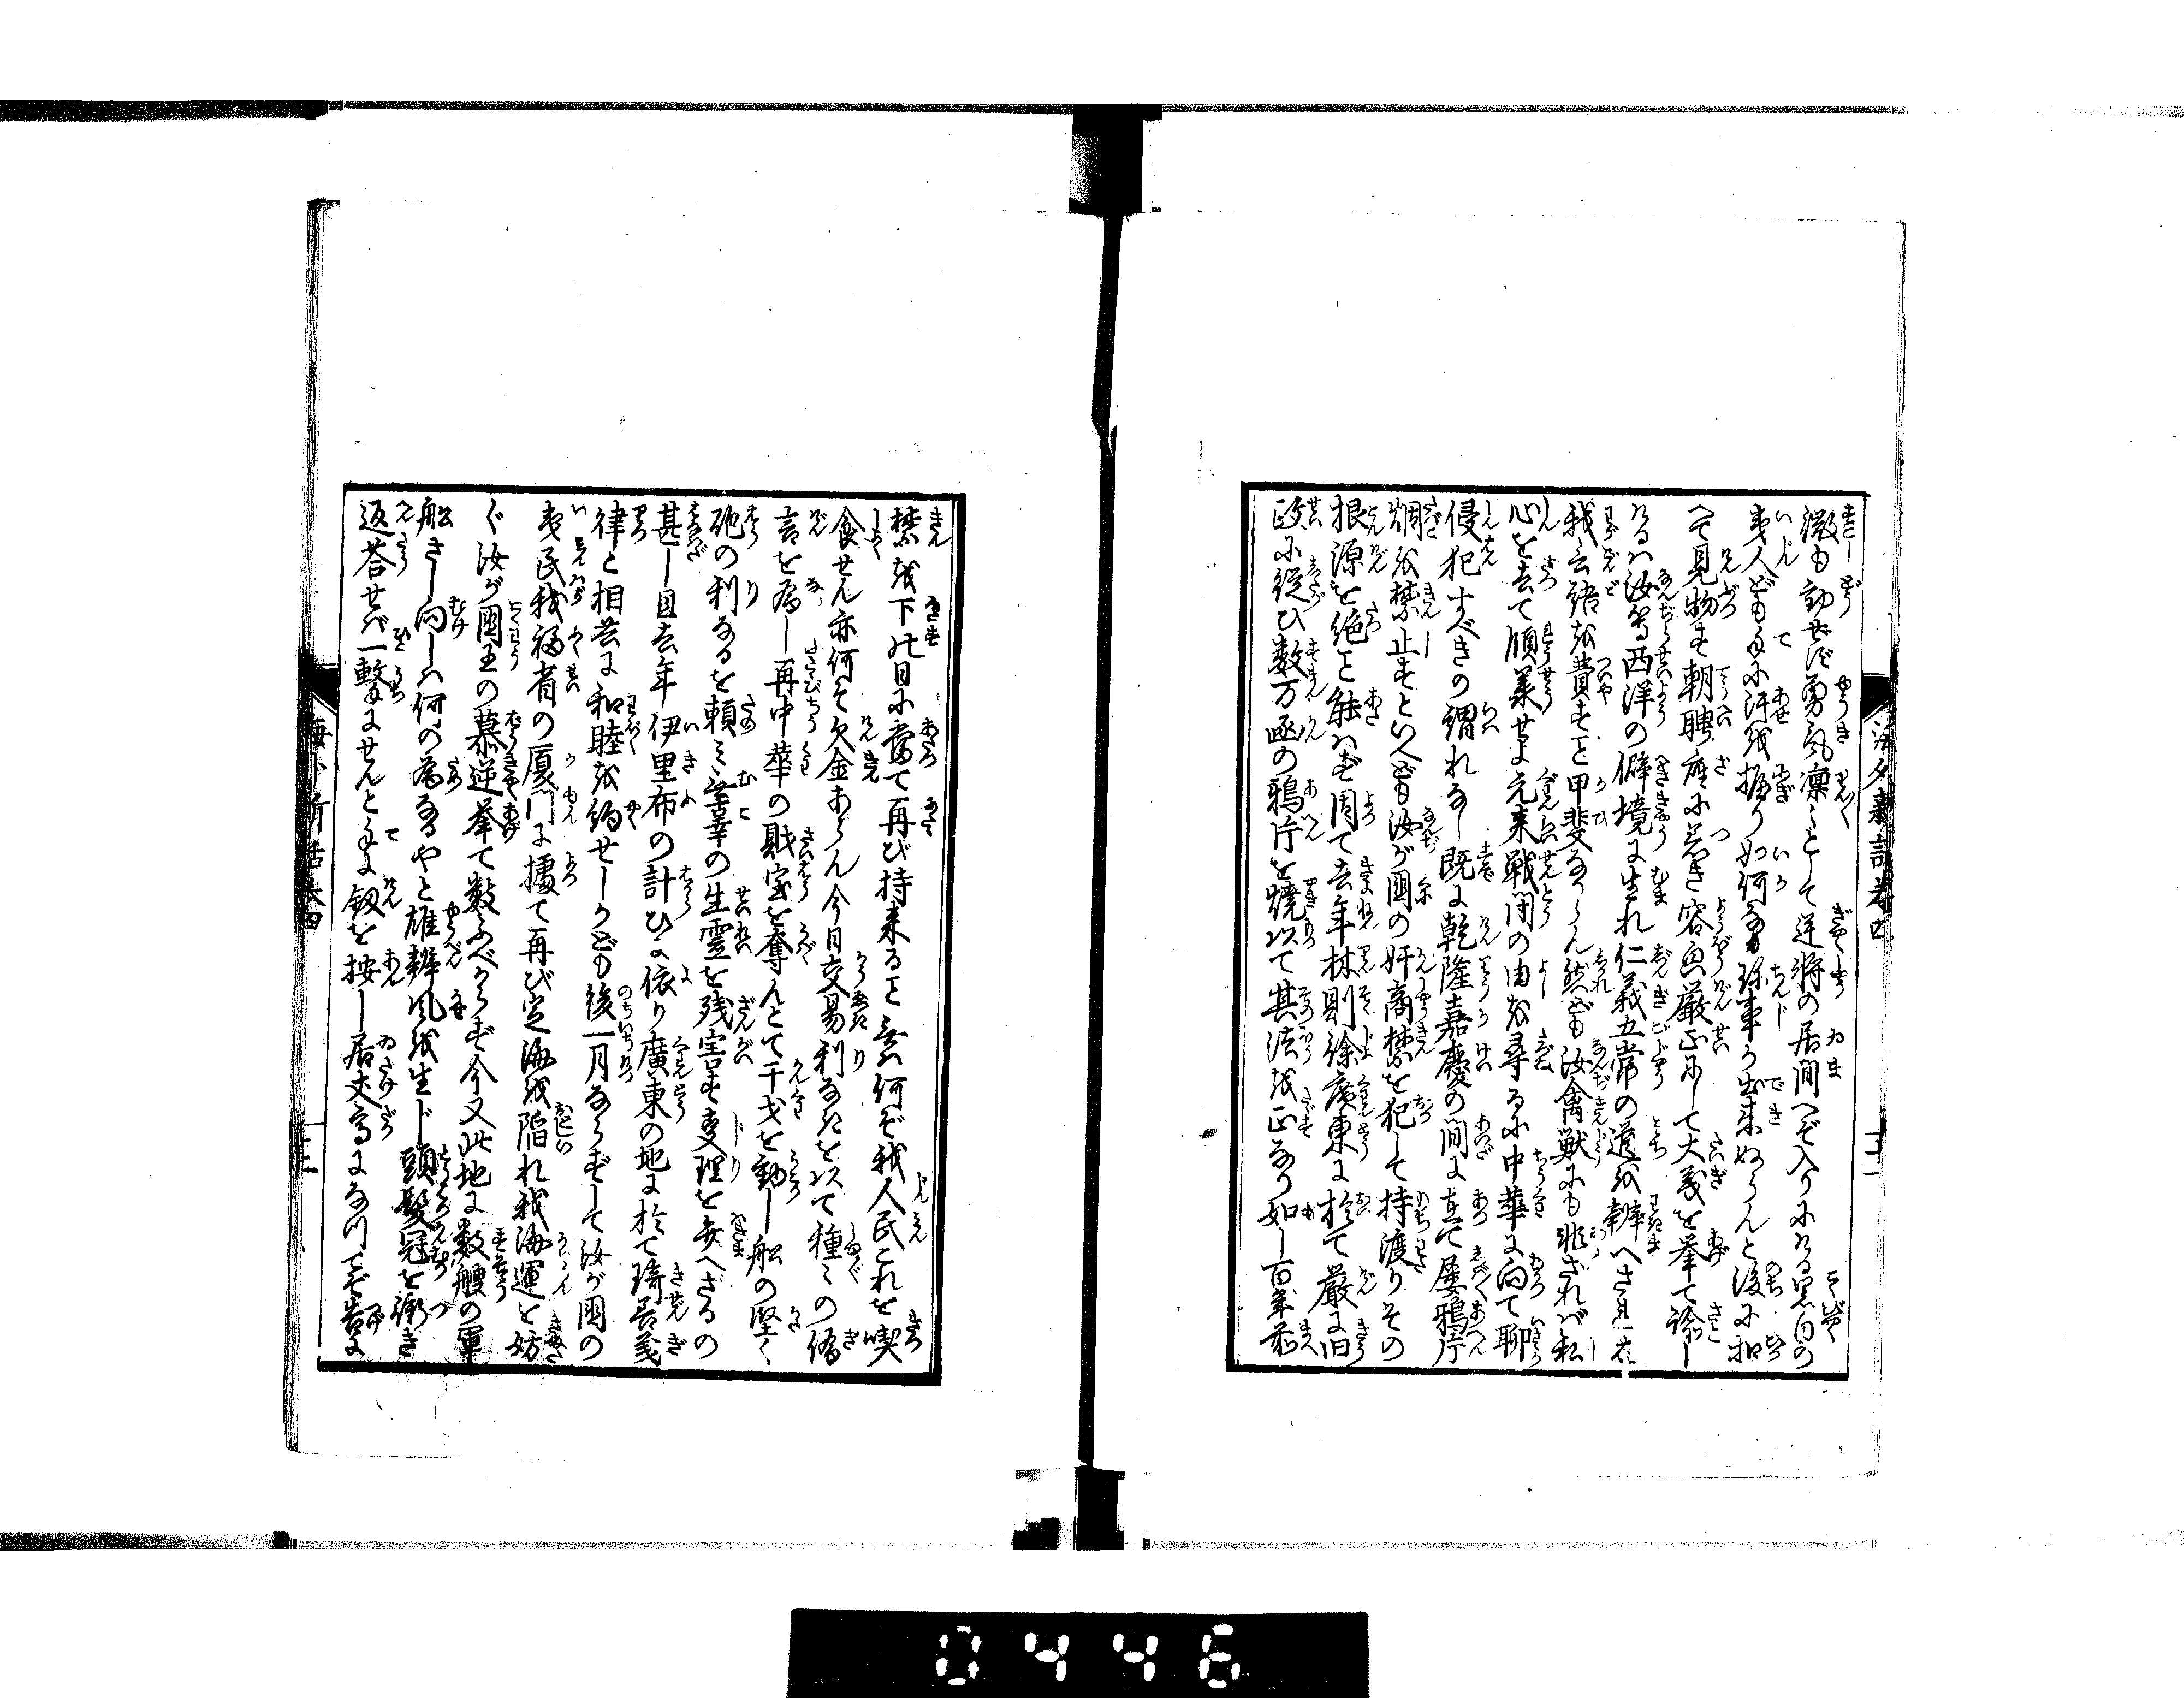 海外新話巻四
微も動ぜず勇気凛々として逆将の居間へぞ入りにける黒白の
夷人ども手に汗を握り如何なる珍事か出来ぬらんと後に扣
へて見物す朝聘座に着き容皃厳正にして大義を挙て諭し
けるハ汝等西洋の僻境に生れ仁義五常の道を辨へざれば
我言語を費すこと甲斐なからん然ども汝禽獣にも非ざれバ私
心を去て順業せよ元来戦闘の由を尋るに中華に向て聊
侵犯すべきの謂れなし既に乾隆嘉慶の間に在て屡鴉片
烟を禁止すといへども汝が国の奸商禁を犯して持渡りその
根源を絶こと能はず因て去年林則徐廣東に於て厳に旧
政に従ひ数万函の鴉片を焼以て其法を正なり如し百年前
禁を下せ目に當て再び持来ること無バ何ぞ我人民これを喫
食せん亦何ぞ欠金あらん今日交易利なきを以て種々の偽
言を為し再中華の財宝を奪んとて干戈を動し船の堅く
砲の利なるを頼ミ無辜の生霊を残害す事理を弁へざるの
甚し且去年伊里布の計ひに依り廣東の地に於て琦善義
律と相共に和睦を約せしかども後一月ならずして汝が国の
夷民我福省の厦門に據て再び定海を陥れ我海運を妨
ぐ汝が国王の慕逆挙て数ふべからず今又此地に数艘の軍
船さし向しハ何の為なるやと雄辨風を生ド頭髪冠を衝き
返答せバ一撃にせんと手に釼を按し居丈高になつてぞ告に
海外新話巻四
0446